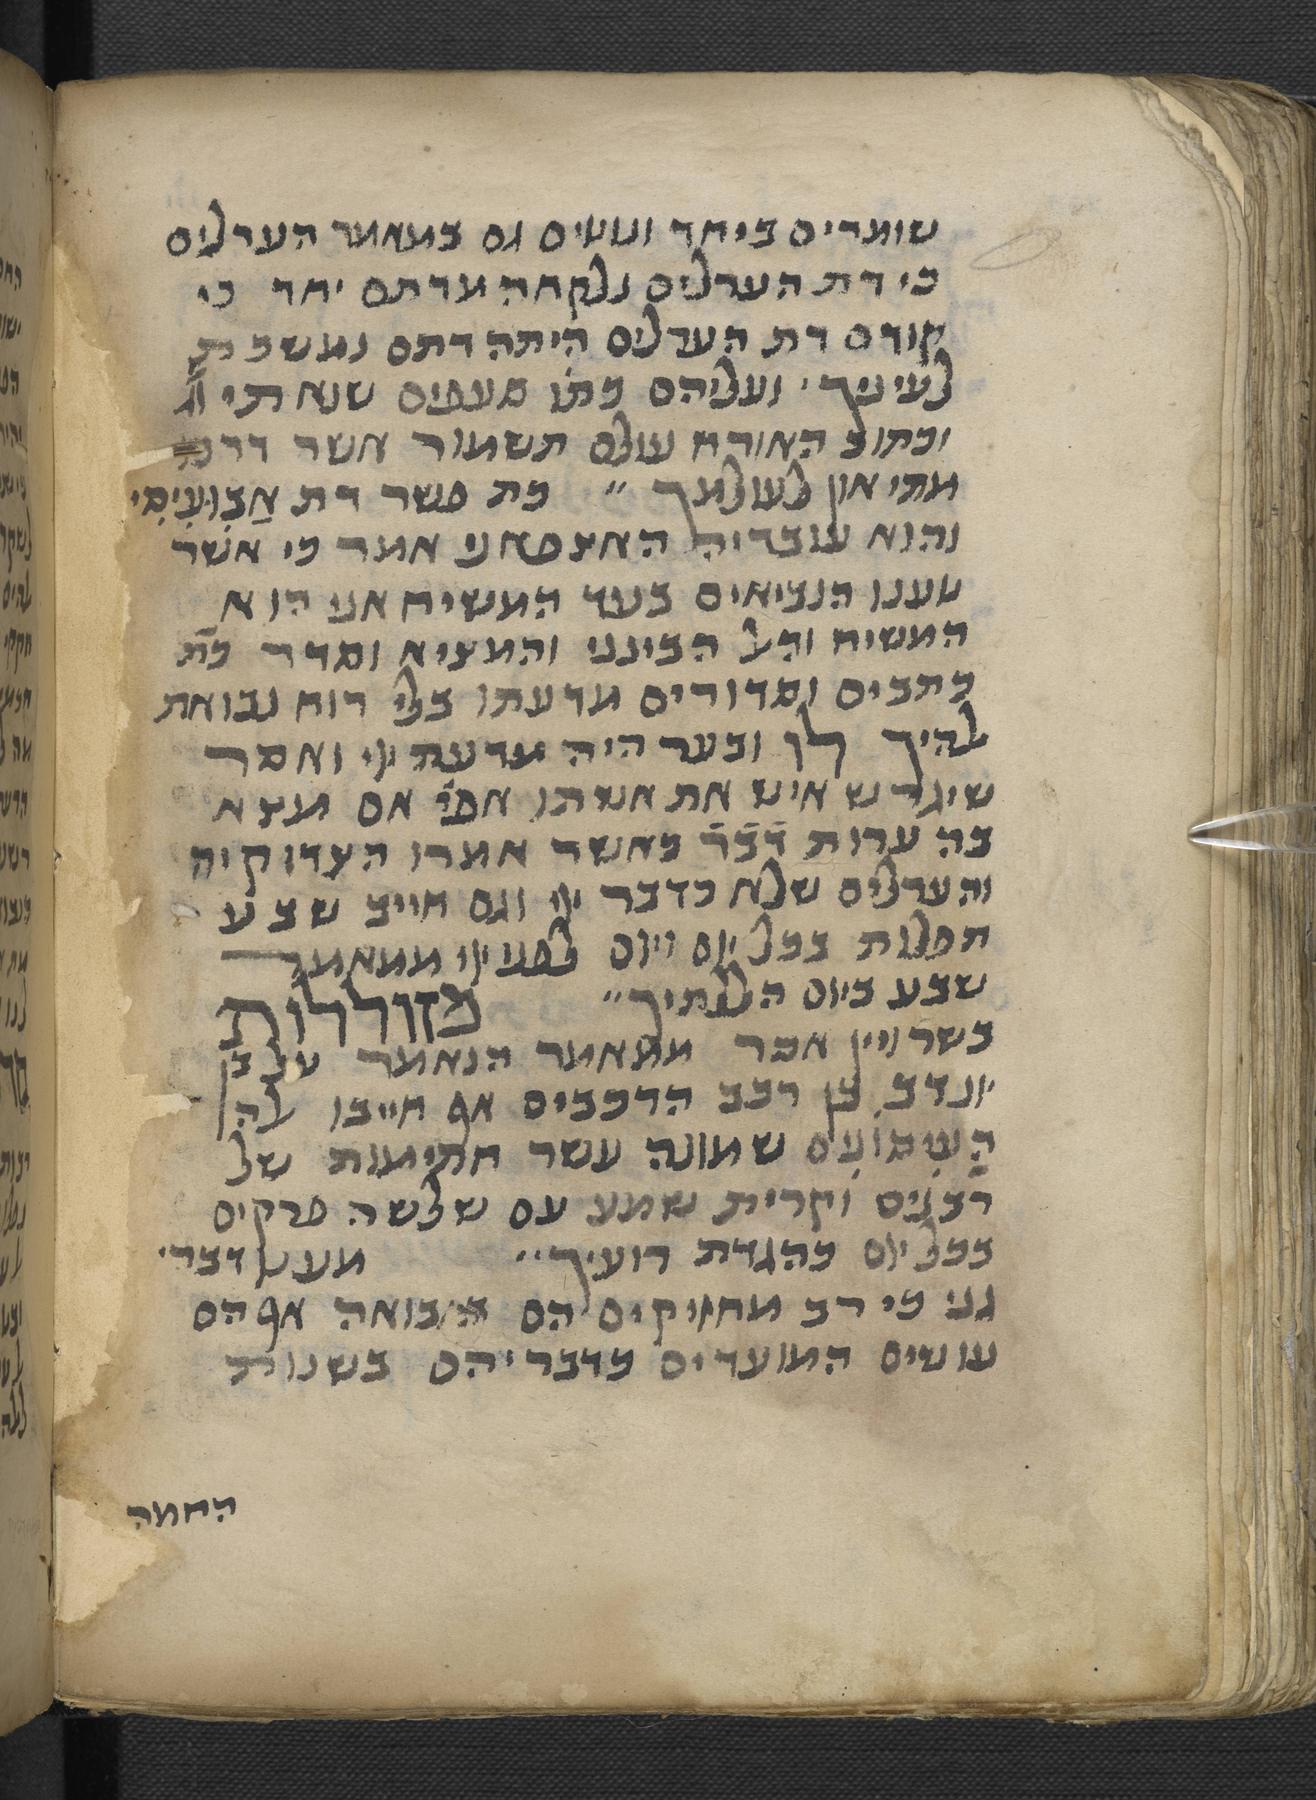 שומרים ביחד ועושים גם במאמר הערלים
כי דת הערלים נלקחה מדתם יחד כי
קודם דת הערלים היתה דתם נמשכת
לעיניך ועליהם כתו סעפים שנאתי וג
וכתוב האורח עולם תשמור אשר דרכו
מתי און לעולמך ״ כת פשר דת אצועימי
והוא עובדיה האצפאני אמר כי אשר
טענו הנביאים בעד המשיח אני הוא
המשיח והע הבינני והמציא וסדר כת
כתבים וסדורים מדעתו בלי רוח נבואת
להיך לך ובער היה מדעת יי ואסר
שיגרש איש את אשתו אפי אם מצא
בה ערות דבר כאשר אמרו הצדוקיה
והערלים שלא כדבר יי וגם חייב שבע
תפלות בכל יום ויום לפני יי ממאמר
שבע ביום הללתיך״ מזוללות
בשר ויין אסר ממאמר הנאמר על בן
יונדב בן רכב הרכבים אף חייבו לה
שמונה עשר חתימות של
רבנים וקרית שמע עם שלשה פרקים
בכל יום כהגדת רועיך״ מעט דברי
גני כי רב מחזיקים הם אף הם
עושים המועדים כדבריהם בשנות
החמה